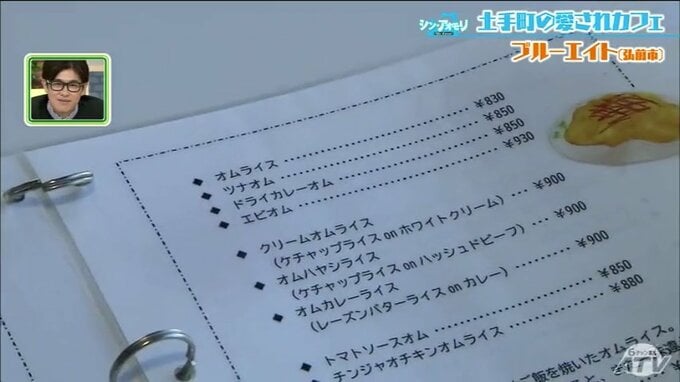 シン・アオモリ
土手町の愛されカフェ
ブルーエイト(弘前市)
◆ オムライス ¥830
◆ ツナオム ¥850
◆ ドライカレーオム ¥850
◆ エビオム ¥930
◆ クリームオムライス ¥900
(ケチャップライス on ホワイトクリーム)
◆ オムハヤシライス ¥900
(ケチャップライス on ハッシュドビーフ)
◆ オムカレーライス ¥900
(レーズンバターライス on カレー)
◆ トマトソースオム ¥850
◆ チンジャオチキンオムライス ¥880
ご飯を焼いたオムライス。
6チャンネル
ATV